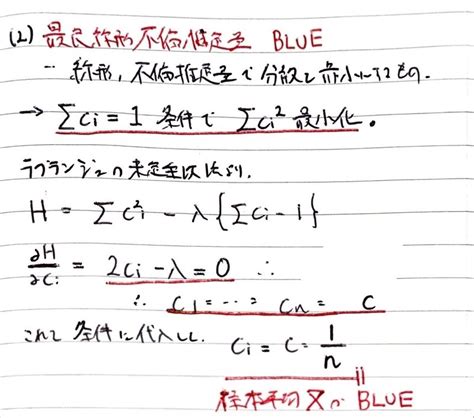 (2) 最良線形不偏推定量 BLUE
… 線形, 不偏推定量で分散を最小にするもの.
→ ∑Ci = 1 条件で ∑Ci² 最小化.
ラグランジュの未定乗数法より.
H = ∑C²i − λ{∑Ci − 1}
∂H/∂Ci = 2Ci − λ = 0 ∴
∴ C1 = … = Cn = C
これを条件に代入して. Ci = C = 1/n
標本平均 X̄ が BLUE